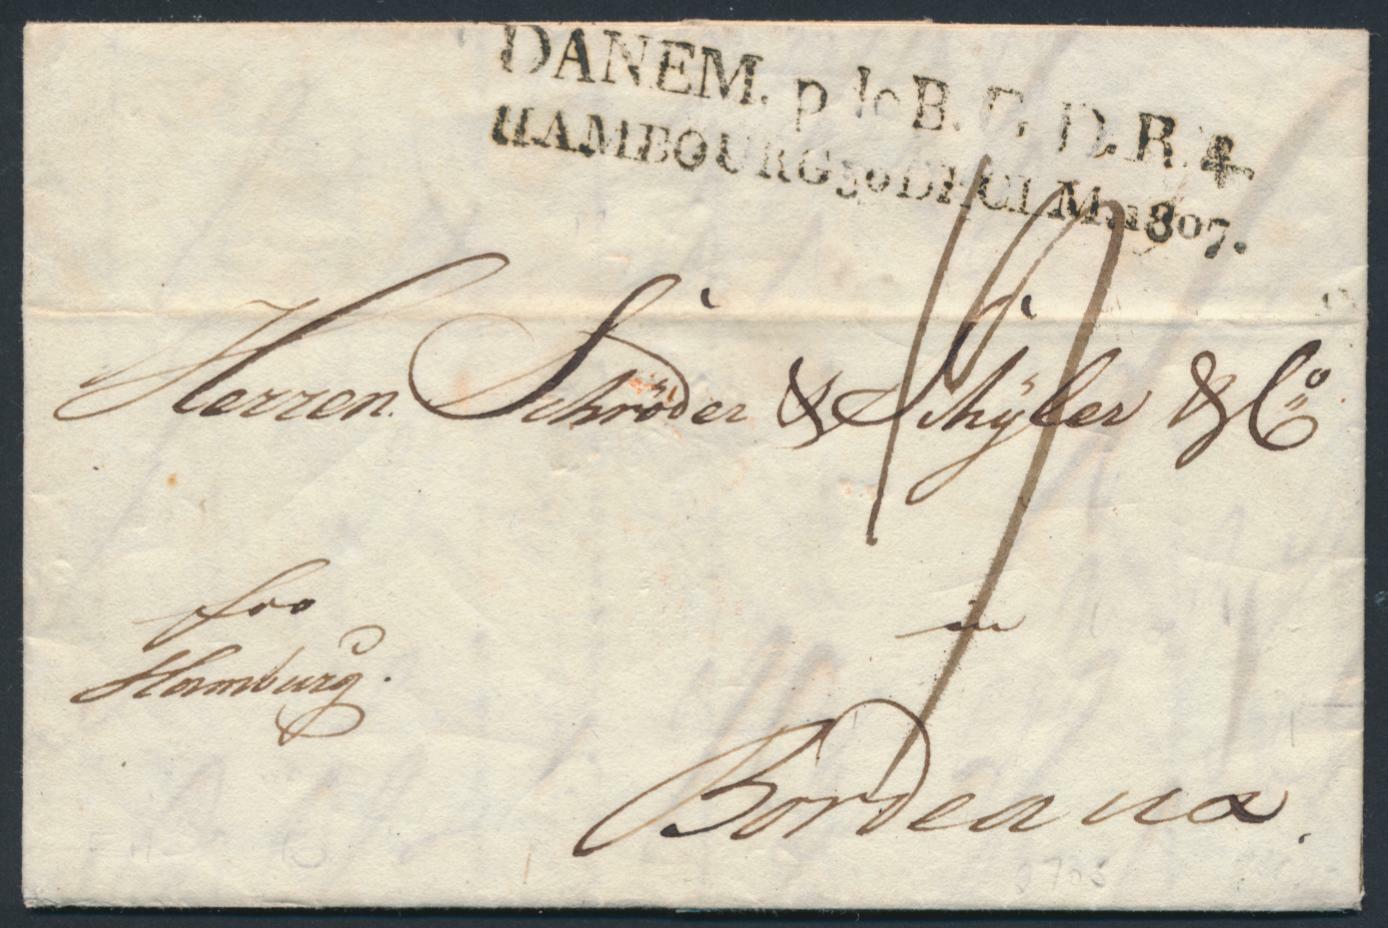 DANEM. p le B. G. D. R. 4
HAMBOURG 30 DECEM. 1807.
19
Herren Schröder & Schÿler & Cº
in
Bordeaux.
fco
Hamburg.